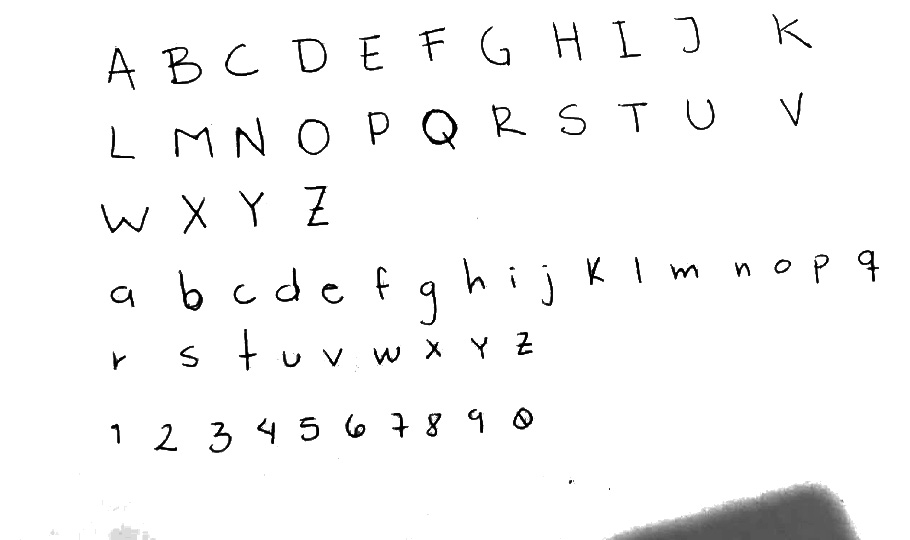 A B C D E F G H I J K
L M N O P Q R S T U V
W X Y Z
a b c d e f g h i j k l m n o p q
r s t u v w x y z
1 2 3 4 5 6 7 8 9 0